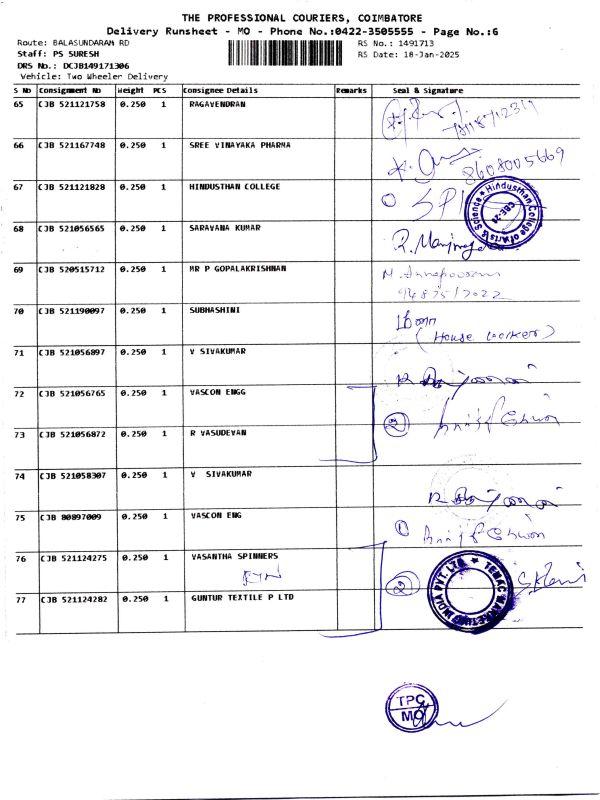 THE PROFESSIONAL COURIERS, COIMBATORE
Delivery Runsheet - MO - Phone No.:0422-3505555 - Page No.:6
Route: BALASUNDARAM RD
RS No.: 1491713
Staff: PS SURESH
RS Date: 18-Jan-2025
DRS No.: DCJB149171306
Vehicle: Two Wheeler Delivery
S No Consignment No Weight PCS Consignee Details Remarks Seal & Signature
65 CJB 521121758 0.250 1 RAGAVENDRAN
66 CJB 521167748 0.250 1 SREE VINAYAKA PHARMA 8608005669
67 CJB 521121828 0.250 1 HINDUSTHAN COLLEGE
Hindusthan College of Arts & Science
68 CJB 521056565 0.250 1 SARAVANA KUMAR
69 CJB 520515712 0.250 1 MR P GOPALAKRISHNAN
70 CJB 521190097 0.250 1 SUBHASHINI
(House worker)
71 CJB 521056897 0.250 1 V SIVAKUMAR
72 CJB 521056765 0.250 1 VASCON ENGG
2
73 CJB 521056872 0.250 1 R VASUDEVAN
74 CJB 521058307 0.250 1 V SIVAKUMAR
75 CJB 80897009 0.250 1 VASCON ENG
1
76 CJB 521124275 0.250 1 VASANTHA SPINNERS
2
TEMAC MARKETING INDIA PVT. LTD.
77 CJB 521124282 0.250 1 GUNTUR TEXTILE P LTD
TPC
MO